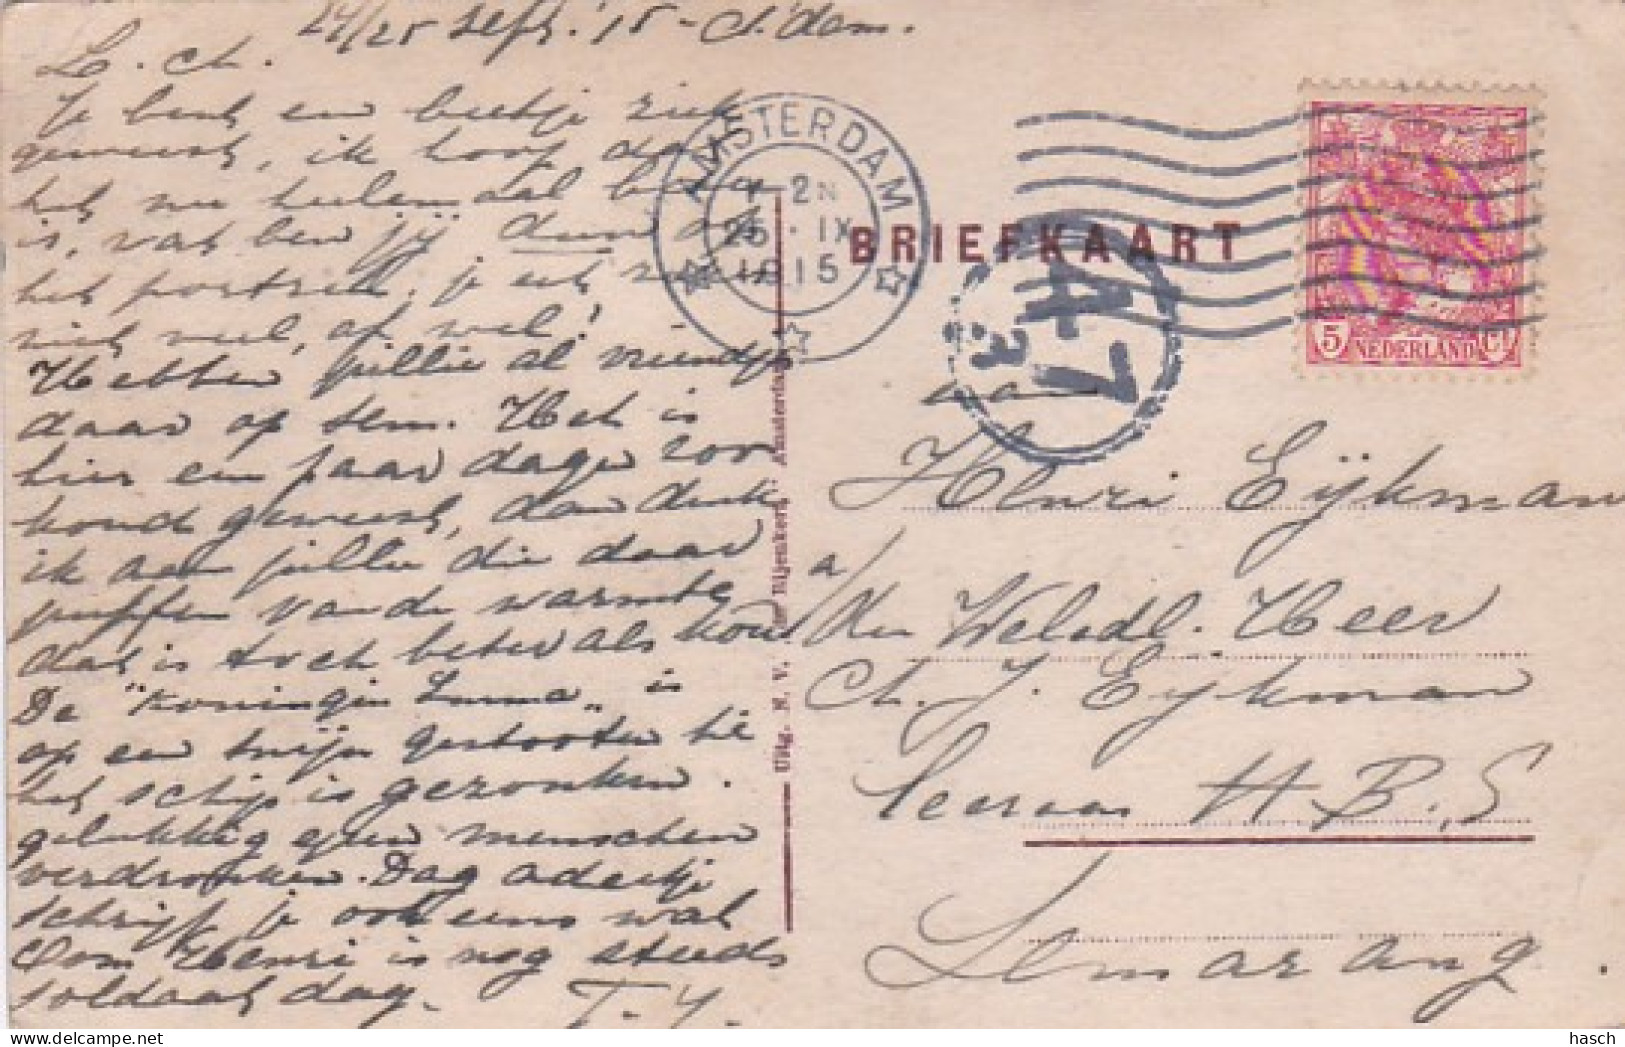 24/25 Sept. '15 - A'dam.
L. ch.
Je bent een beetje ziek
geweest, ik hoop dat
het nu heelemaal beter
is, wat ben jij dun op
het portret, je eet zeker
niet veel, of wel!
Hebben jullie al vriendjes
daar op Sem. Het is
hier een paar dagen zoo
koud geweest, dan denk
ik aan jullie die daar
puffen van de warmte
dat is toch beter als kou
De "Koningin Emma" is
op een mijn gestooten hè
het schip is gezonken.
gelukkig geen menschen
verdronken. Dag adeetje
schrijf je ook eens wat
Oom Henri is nog steeds
soldaat dag.
T. Y.
AMSTERDAM
1-2 N
25 . IX
1915
BRIEFKAART
5 NEDERLAND Ct
47
3
Uitg. N. V. Bijenkorf Amsterdam
aan
Henri Eijkman
a/
den Weledl. Heer
Ch. J. Eykman
leeraar H.B.S
Semarang.
hasch